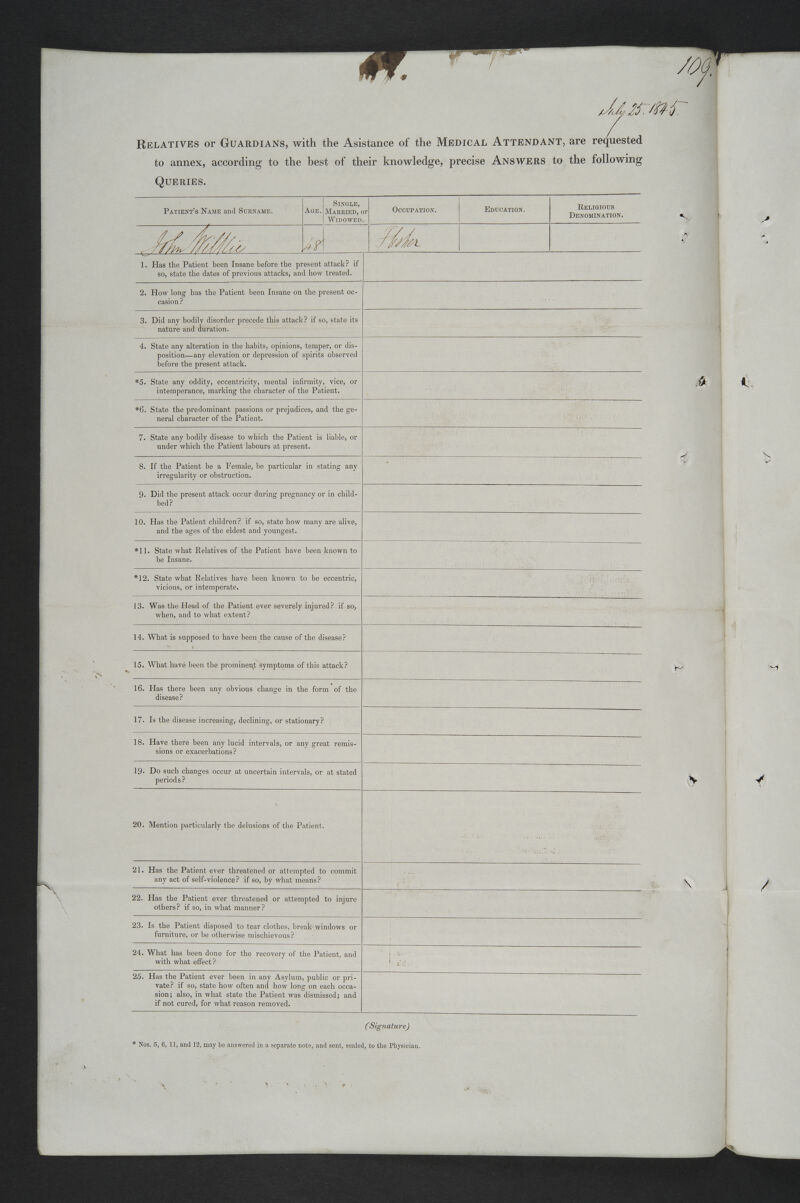 109.
July 25. 1845
Relatives or Guardians, with the Asistance of the Medical Attendant, are requested
to annex, according to the best of their knowledge, precise Answers to the following
Queries.
Patient's Name and Surname. Age. Single, Married, or Widowed. Occupation. Education. Religious Denomination.
John Wilkie 48
1. Has the Patient been Insane before the present attack? if
so, state the dates of previous attacks, and how treated.
2. How long has the Patient been Insane on the present oc-
casion?
3. Did any bodily disorder precede this attack? if so, state its
nature and duration.
4. State any alteration in the habits, opinions, temper, or dis-
position—any elevation or depression of spirits observed
before the present attack.
*5. State any oddity, eccentricity, mental infirmity, vice, or
intemperance, marking the character of the Patient.
*6. State the predominant passions or prejudices, and the ge-
neral character of the Patient.
7. State any bodily disease to which the Patient is liable, or
under which the Patient labours at present.
8. If the Patient be a Female, be particular in stating any
irregularity or obstruction.
9. Did the present attack occur during pregnancy or in child-
bed?
10. Has the Patient children? if so, state how many are alive,
and the ages of the eldest and youngest.
*11. State what Relatives of the Patient have been known to
be Insane.
*12. State what Relatives have been known to be eccentric,
vicious, or intemperate.
13. Was the Head of the Patient ever severely injured? if so,
when, and to what extent?
14. What is supposed to have been the cause of the disease?
15. What have been the prominent symptoms of this attack?
16. Has there been any obvious change in the form of the
disease?
17. Is the disease increasing, declining, or stationary?
18. Have there been any lucid intervals, or any great remis-
sions or exacerbations?
19. Do such changes occur at uncertain intervals, or at stated
periods?
20. Mention particularly the delusions of the Patient.
21. Has the Patient ever threatened or attempted to commit
any act of self-violence? if so, by what means?
22. Has the Patient ever threatened or attempted to injure
others? if so, in what manner?
23. Is the Patient disposed to tear clothes, break windows or
furniture, or be otherwise mischievous?
24. What has been done for the recovery of the Patient, and
with what effect?
25. Has the Patient ever been in any Asylum, public or pri-
vate? if so, state how often and how long on each occa-
sion; also, in what state the Patient was dismissed; and
if not cured, for what reason removed.
(Signature)
* Nos. 5, 6, 11, and 12, may be answered in a separate note, and sent, sealed, to the Physician.